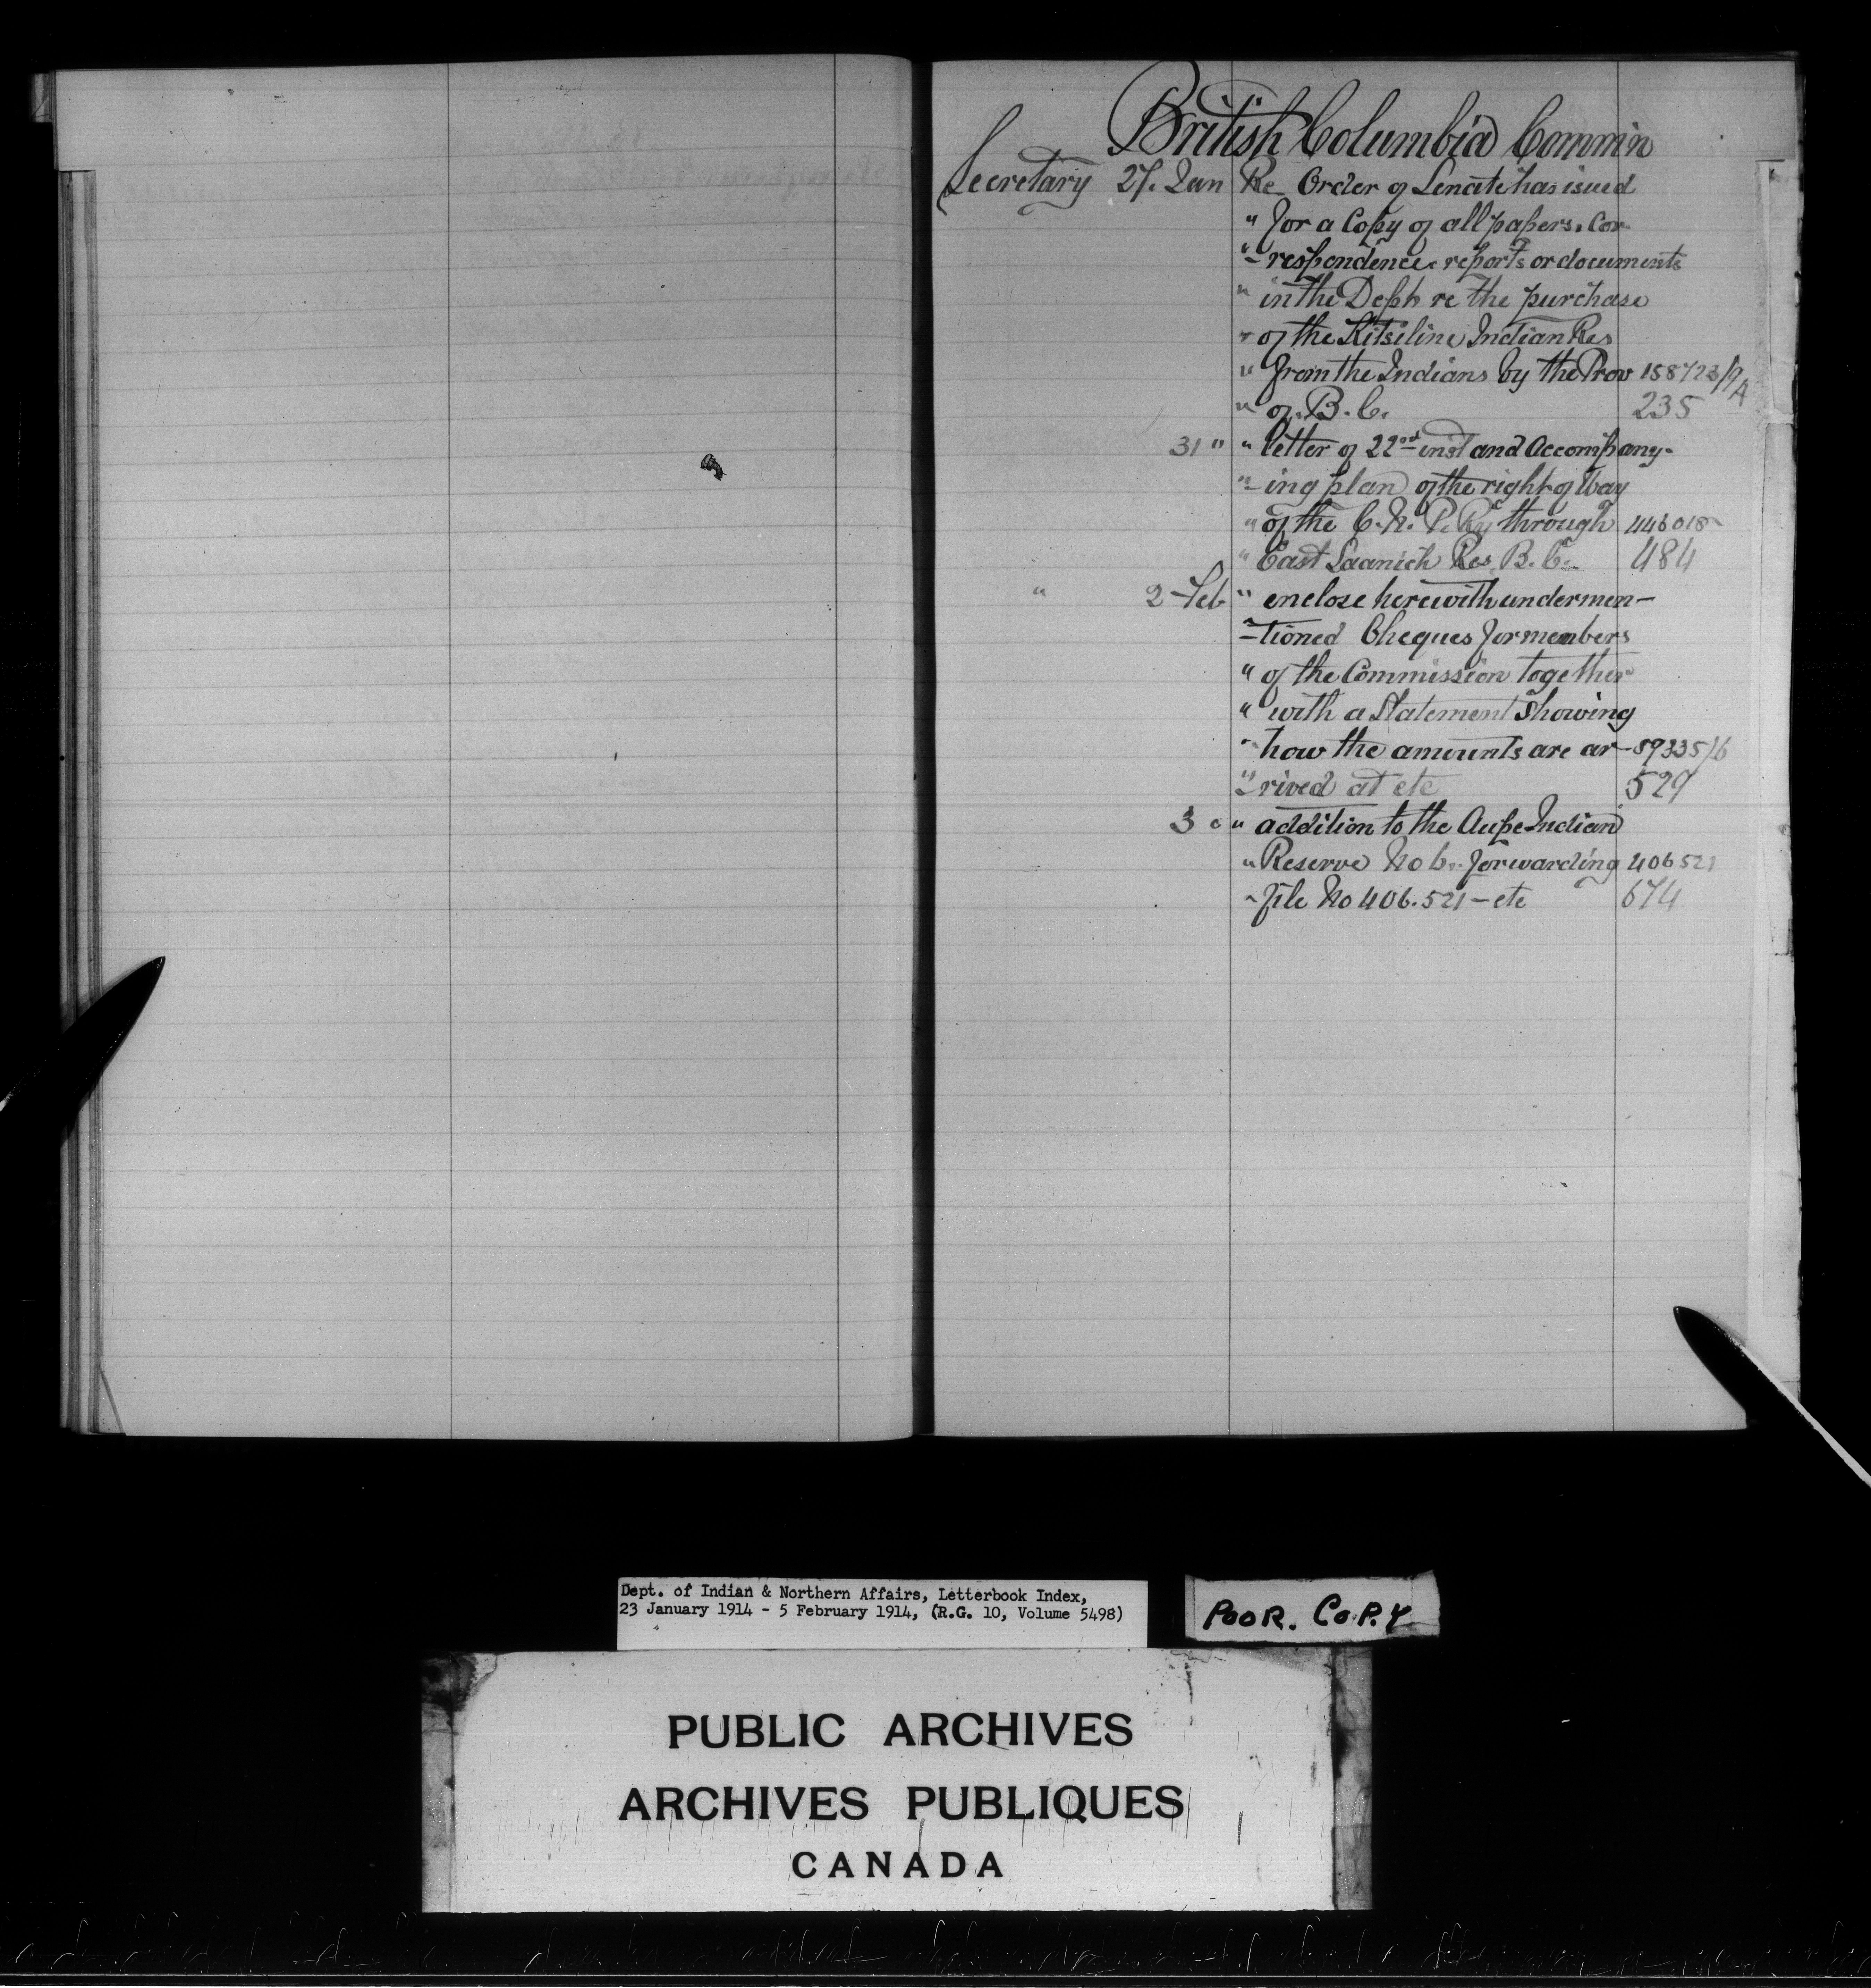 British Columbia Commin
Secretary 27. Jan Re Order of Senate has issued
" for a Copy of all papers, Cor-
"- respondence, reports or documents
" in the Dept re the purchase
" of the Kitsiline Indian Res
" from the Indians by the Prov 158723/9A
" of B.C. 235
31 " " letter of 22nd inst and Accompany-
"- ing plan of the right of Way
" of the C.N.P. Ry through 446018
" East Saanich Res. B.C. 484
" 2 Feb " enclose herewith undermen-
"- tioned Cheques for members
" of the Commission together
" with a Statement Showing
" how the amounts are ar- 59335/6
" rived at etc 529
3 " " addition to the Aupe Indian
" Reserve No 6. forwarding 406521
" file No 406.521 - etc 674
Dept. of Indian & Northern Affairs, Letterbook Index,
23 January 1914 - 5 February 1914, (R.G. 10, Volume 5498)
POOR. COPY
PUBLIC ARCHIVES
ARCHIVES PUBLIQUES
CANADA